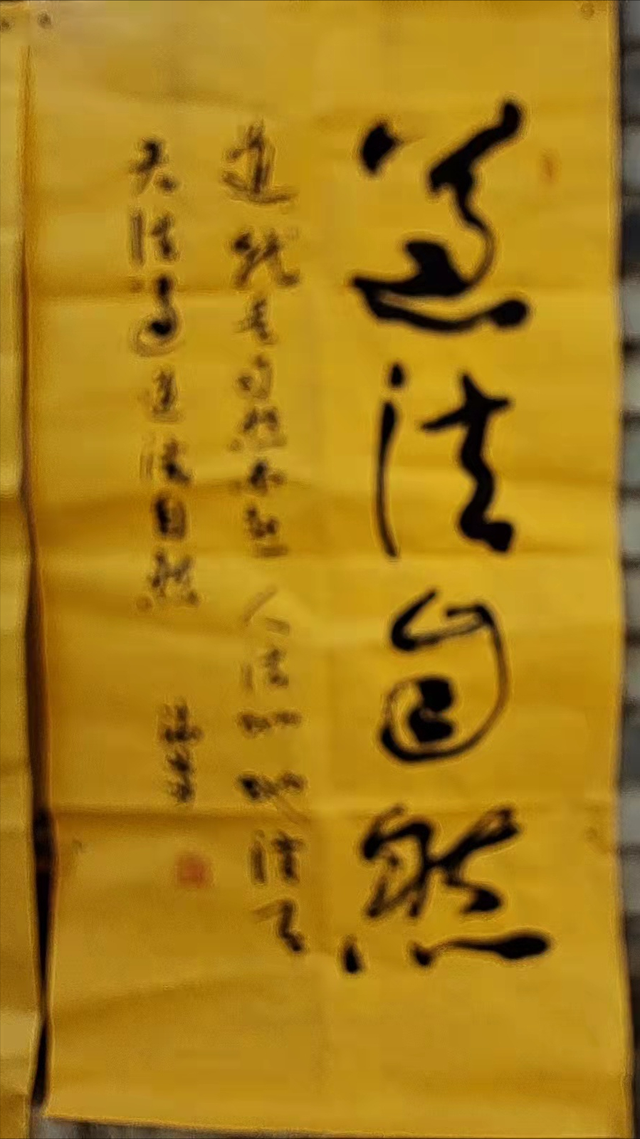 道法自然
道就是自然本然 人法地地法天
天法道道法自然